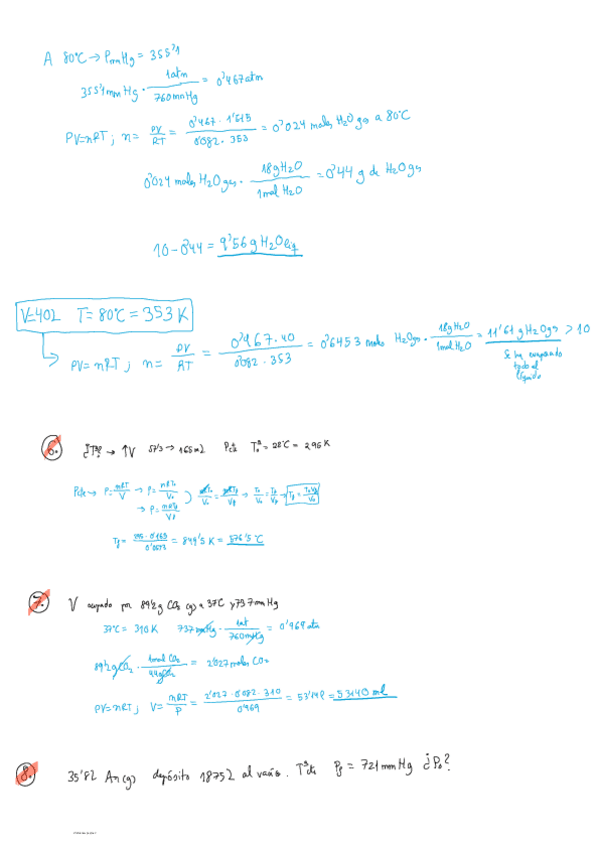 A 80ºC → PmmHg = 355'1
355'1 mmHg · 1atm / 760mmHg = 0'467 atm
PV=nRT ; n = PV / RT = 0'467 · 1'615 / 0'082 · 353 = 0'024 moles H2O gas a 80ºC
0'024 moles H2O gas · 18g H2O / 1mol H2O = 0'44 g de H2O gas
10 - 0'44 = 9'56 g H2O liq
V=40L T = 80ºC = 353 K
PV = nRT ; n = PV / RT = 0'467 · 40 / 0'082 · 353 = 0'6453 moles H2O gas · 18g H2O / 1mol H2O = 11'61 g H2O gas > 10
Se ha evaporado
todo el
líquido
6. ¿Tª? → ↑V 57'3 → 165 mL Pcte Tª0 = 23ºC = 296 K
Pcte → P = nRT / V → P = nRT0 / V0
→ P = nRTf / Vf
nRT0 / V0 = nRTf / Vf → T0 / V0 = Tf / Vf → Tf = T0 Vf / V0
Tf = 296 · 0'165 / 0'0573 = 849'5 K = 576'5 ºC
7. V ocupado por 89'2g CO2 (g) a 37ºC y 737 mmHg
37ºC = 310 K 737 mmHg · 1at / 760 mmHg = 0'969 atm
89'2 g CO2 · 1mol CO2 / 44g CO2 = 2'027 moles CO2
PV = nRT ; V = nRT / P = 2'027 · 0'082 · 310 / 0'969 = 53'14 L = 53140 ml
8. 35'8L Ar (g) depósito 1875L al vacío. Tª cte Pf = 721 mmHg ¿P0?